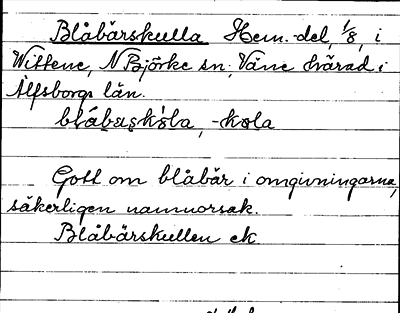 Blåbärskulla Hem.-del, 1/8, i
Wittene, N Björke sn; Väne härad i
Älfsborgs län.
blåbaskʹola, -kola
Gott om blåbär i omgivningarna,
säkerligen namnorsak.
Blåbärskullen ek